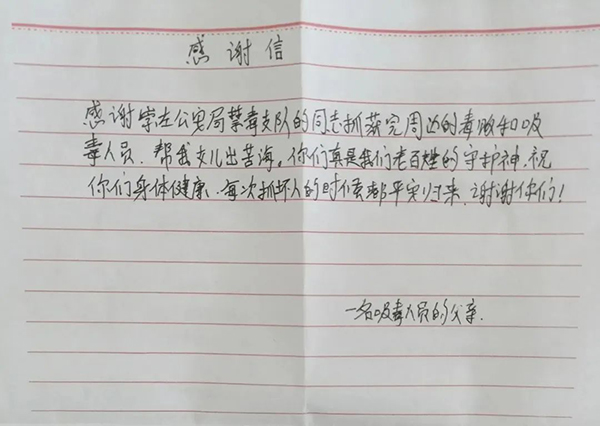 感谢信
感谢崇左公安局禁毒支队的同志抓获完周边的毒贩和吸
毒人员，帮我女儿出苦海，你们真是我们老百姓的守护神，祝
你们身体健康，每次抓坏人的时候都平安归来，谢谢你们！
一名吸毒人员的父亲．